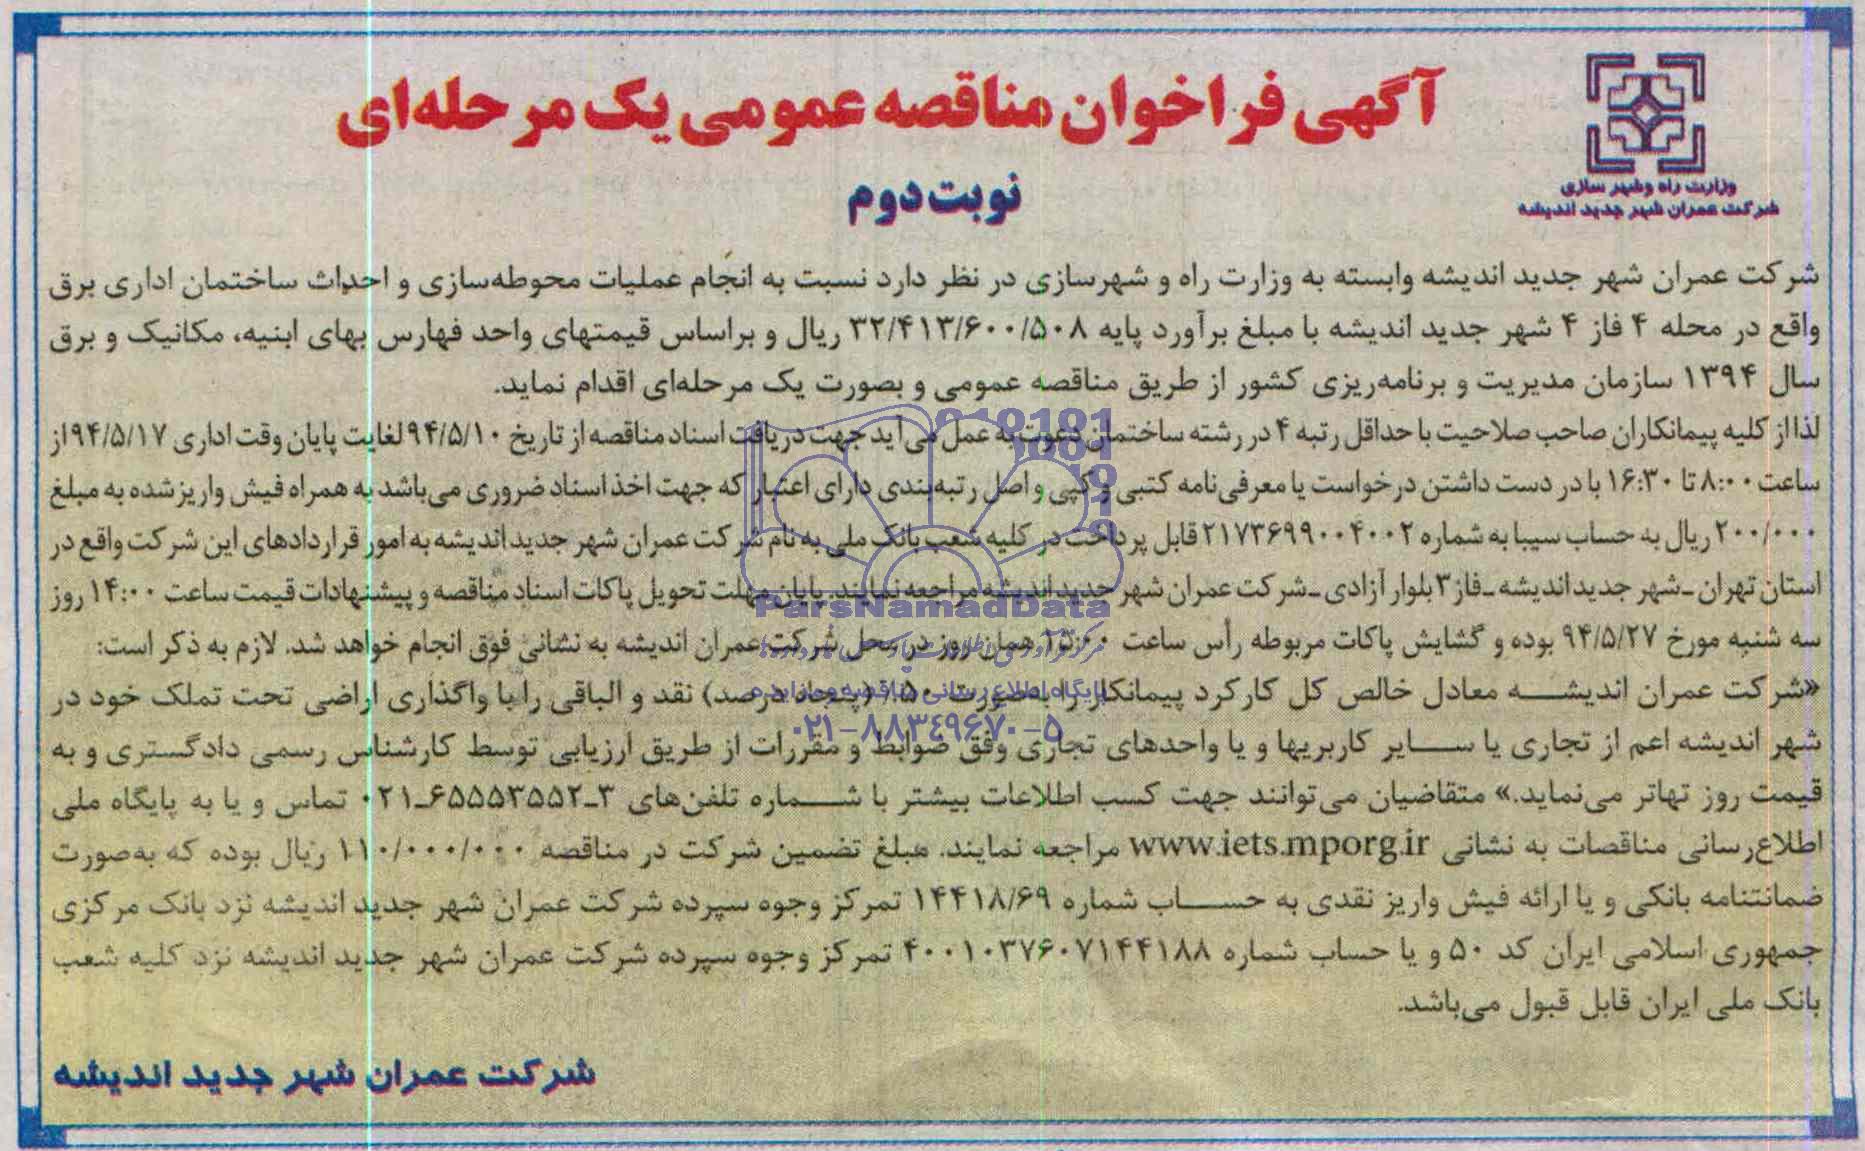 آگهی فراخوان مناقصه عمومی یک مرحله‌ای
نوبت دوم
وزارت راه و شهرسازی
شرکت عمران شهر جدید اندیشه
شرکت عمران شهر جدید اندیشه وابسته به وزارت راه و شهرسازی در نظر دارد نسبت به انجام عملیات محوطه‌سازی و احداث ساختمان اداری برق
واقع در محله ۴ فاز ۴ شهر جدید اندیشه با مبلغ برآورد پایه ۳۲/۴۱۳/۶۰۰/۵۰۸ ریال و براساس قیمتهای واحد فهارس بهای ابنیه، مکانیک و برق
سال ۱۳۹۴ سازمان مدیریت و برنامه‌ریزی کشور از طریق مناقصه عمومی و بصورت یک مرحله‌ای اقدام نماید.
لذا از کلیه پیمانکاران صاحب صلاحیت با حداقل رتبه ۴ در رشته ساختمان دعوت به عمل می‌آید جهت دریافت اسناد مناقصه از تاریخ ۹۴/۵/۱۰ لغایت پایان وقت اداری ۹۴/۵/۱۷ از
ساعت ۸:۰۰ تا ۱۶:۳۰ با در دست داشتن درخواست یا معرفی‌نامه کتبی و کپی و اصل رتبه‌بندی دارای اعتبار که جهت اخذ اسناد ضروری می‌باشد به همراه فیش واریز شده به مبلغ
۲۰۰/۰۰۰ ریال به حساب سیبا به شماره ۲۱۷۳۶۹۹۰۰۴۰۰۲ قابل پرداخت در کلیه شعب بانک ملی به نام شرکت عمران شهر جدید اندیشه به امور قراردادهای این شرکت واقع در
استان تهران ـ شهر جدید اندیشه ـ فاز ۳ بلوار آزادی ـ شرکت عمران شهر جدید اندیشه مراجعه نمایند. پایان مهلت تحویل پاکات اسناد مناقصه و پیشنهادات قیمت ساعت ۱۴:۰۰ روز
سه شنبه مورخ ۹۴/۵/۲۷ بوده و گشایش پاکات مربوطه رأس ساعت ۱۵:۰۰ همان روز در محل شرکت عمران اندیشه به نشانی فوق انجام خواهد شد. لازم به ذکر است:
«شرکت عمران اندیشه معادل خالص کل کارکرد پیمانکار را بصورت ۵۰٪ (پنجاه درصد) نقد و الباقی را با واگذاری اراضی تحت تملک خود در
شهر اندیشه اعم از تجاری یا سایر کاربریها و یا واحدهای تجاری وفق ضوابط و مقررات از طریق ارزیابی توسط کارشناس رسمی دادگستری و به
قیمت روز تهاتر می‌نماید.» متقاضیان می‌توانند جهت کسب اطلاعات بیشتر با شماره تلفن‌های ۳ـ۶۵۵۵۳۵۵۲ـ۰۲۱ تماس و یا به پایگاه ملی
اطلاع‌رسانی مناقصات به نشانی www.iets.mporg.ir مراجعه نمایند. مبلغ تضمین شرکت در مناقصه ۱۱۰/۰۰۰/۰۰۰ ریال بوده که به‌صورت
ضمانتنامه بانکی و یا ارائه فیش واریز نقدی به حساب شماره ۱۴۴۱۸/۶۹ تمرکز وجوه سپرده شرکت عمران شهر جدید اندیشه نزد بانک مرکزی
جمهوری اسلامی ایران کد ۵۰ و یا حساب شماره ۴۰۰۱۰۳۷۶۰۷۱۴۴۱۸۸ تمرکز وجوه سپرده شرکت عمران شهر جدید اندیشه نزد کلیه شعب
بانک ملی ایران قابل قبول می‌باشد.
شرکت عمران شهر جدید اندیشه
ParsNamadData
پایگاه اطلاع رسانی مناقصه و مزایده
۰۲۱-۸۸۳۴۹۶۷۰-۵